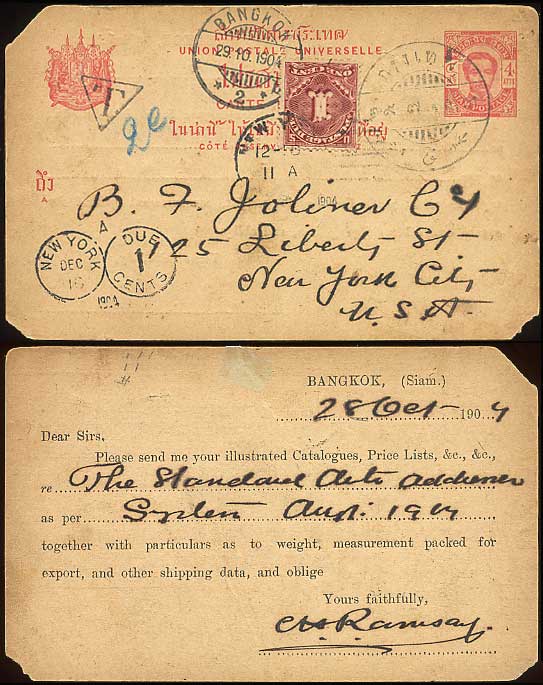 BANGKOK
29.10.1904
2
UNION POSTALE UNIVERSELLE
T
2c
1
NEW
11 A
CÔTÉ
ถึง
A
B. F. Joliner Co
25 Liberty St.
New York City
U.S.A.
NEW YORK
DEC
16
1904
A
DUE
1
CENTS
BANGKOK, (Siam.)
28 Oct 1904
Dear Sirs,
Please send me your illustrated Catalogues, Price Lists, &c., &c.,
re The Standard Auto Addresser
as per System Aug. 1904
together with particulars as to weight, measurement packed for
export, and other shipping data, and oblige
Yours faithfully,
Ramsay